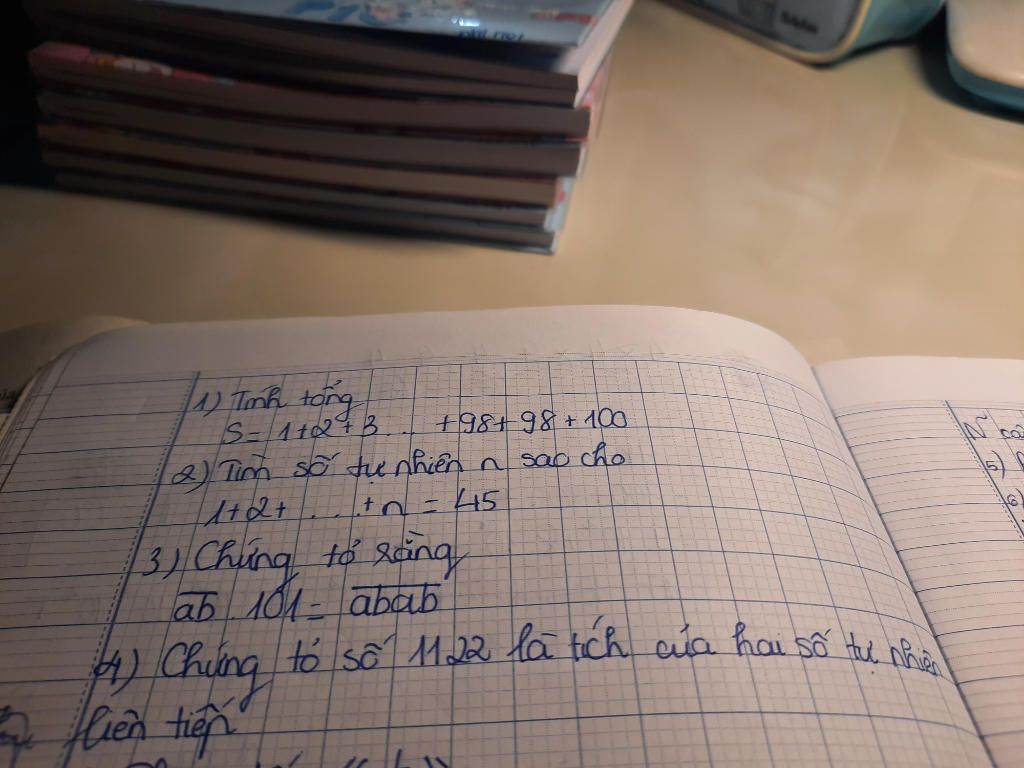 1) Tính tổng
S = 1+2+3... +98+98+100
2) Tìm số tự nhiên n sao cho
1+2+ ... +n = 45
3) Chứng tỏ rằng
a͞b . 101 = a͞b͞a͞b
4) Chứng tỏ số 1122 là tích của hai số tự nhiên
liên tiếp
5)
6)